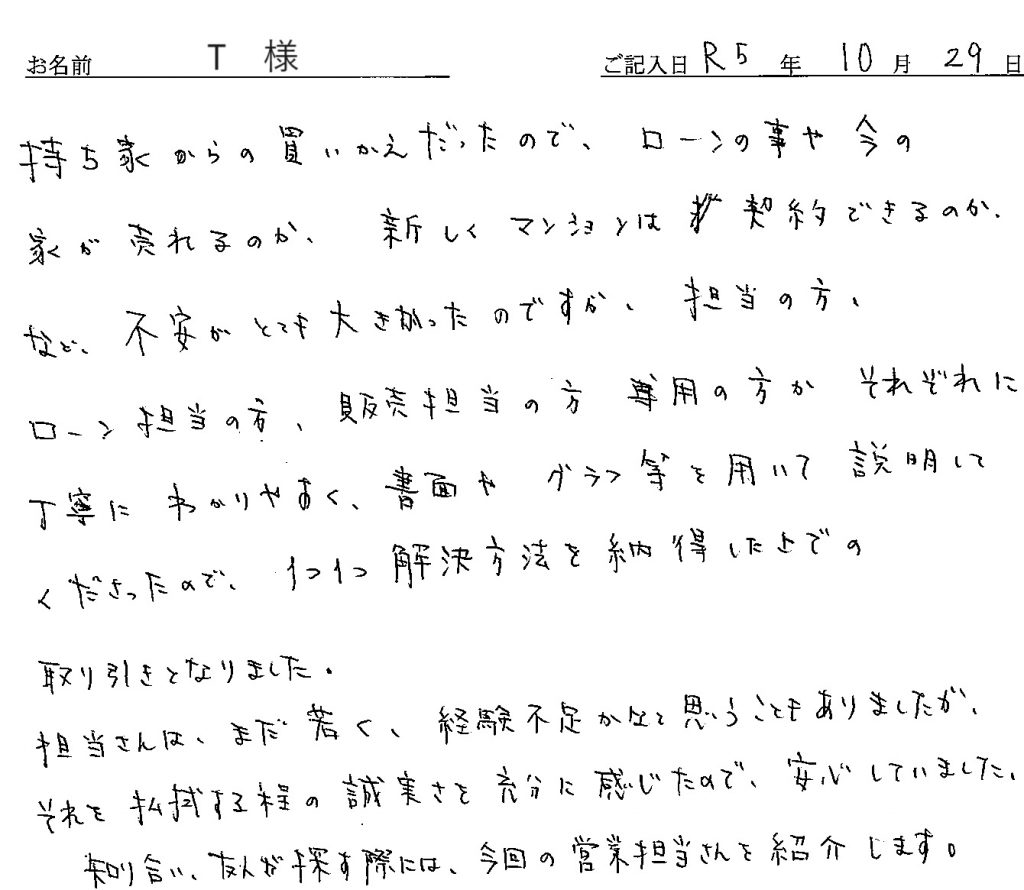 お名前 T 様 ご記入日 R5 年 10 月 29 日
持ち家からの買いかえだったので、ローンの事や今の
家が売れるのか、新しくマンションは契約できるのか、
など、不安がとても大きかったのですが、担当の方、
ローン担当の方、販売担当の方 専用の方が それぞれに
丁寧に わかりやすく、書面や グラフ等を用いて 説明して
くださったので、1つ1つ 解決方法を納得した上での
取り引きとなりました。
担当さんは、まだ若く、経験不足かなと思うこともありましたが、
それを払拭する程の誠実さを充分に感じたので、安心していました。
知り合い、友人が探す際には、今回の営業担当さんを紹介します。